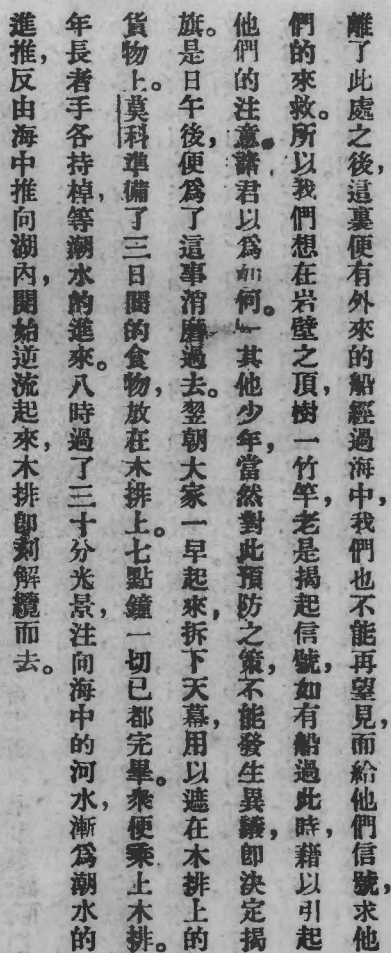 離了此處之後，這裏便有外來的船經過海中，我們也不能再望見，而給他們信號，求他
們的來救。所以我們想在岩壁之頂，樹一竹竿，老是揭起信號，如有船過此時，藉以引起
他們的注意。諸君以爲如何。」其他少年，當然對此預防之策，不能發生異議，卽決定揭
旗。是日午後，便爲了這事消磨過去。翌朝大家一早起來，拆下天幕，用以遮在木排上的
貨物上。莫科準備了三日間的食物，放在木排上。七點鐘一切已都完畢。衆便乘上木排。
年長者手各持棹，等潮水的進來。八時過了三十分光景，注向海中的河水，漸爲潮水的
進推，反由海中推向湖內，開始逆流起來，木排卽刻解纜而去。